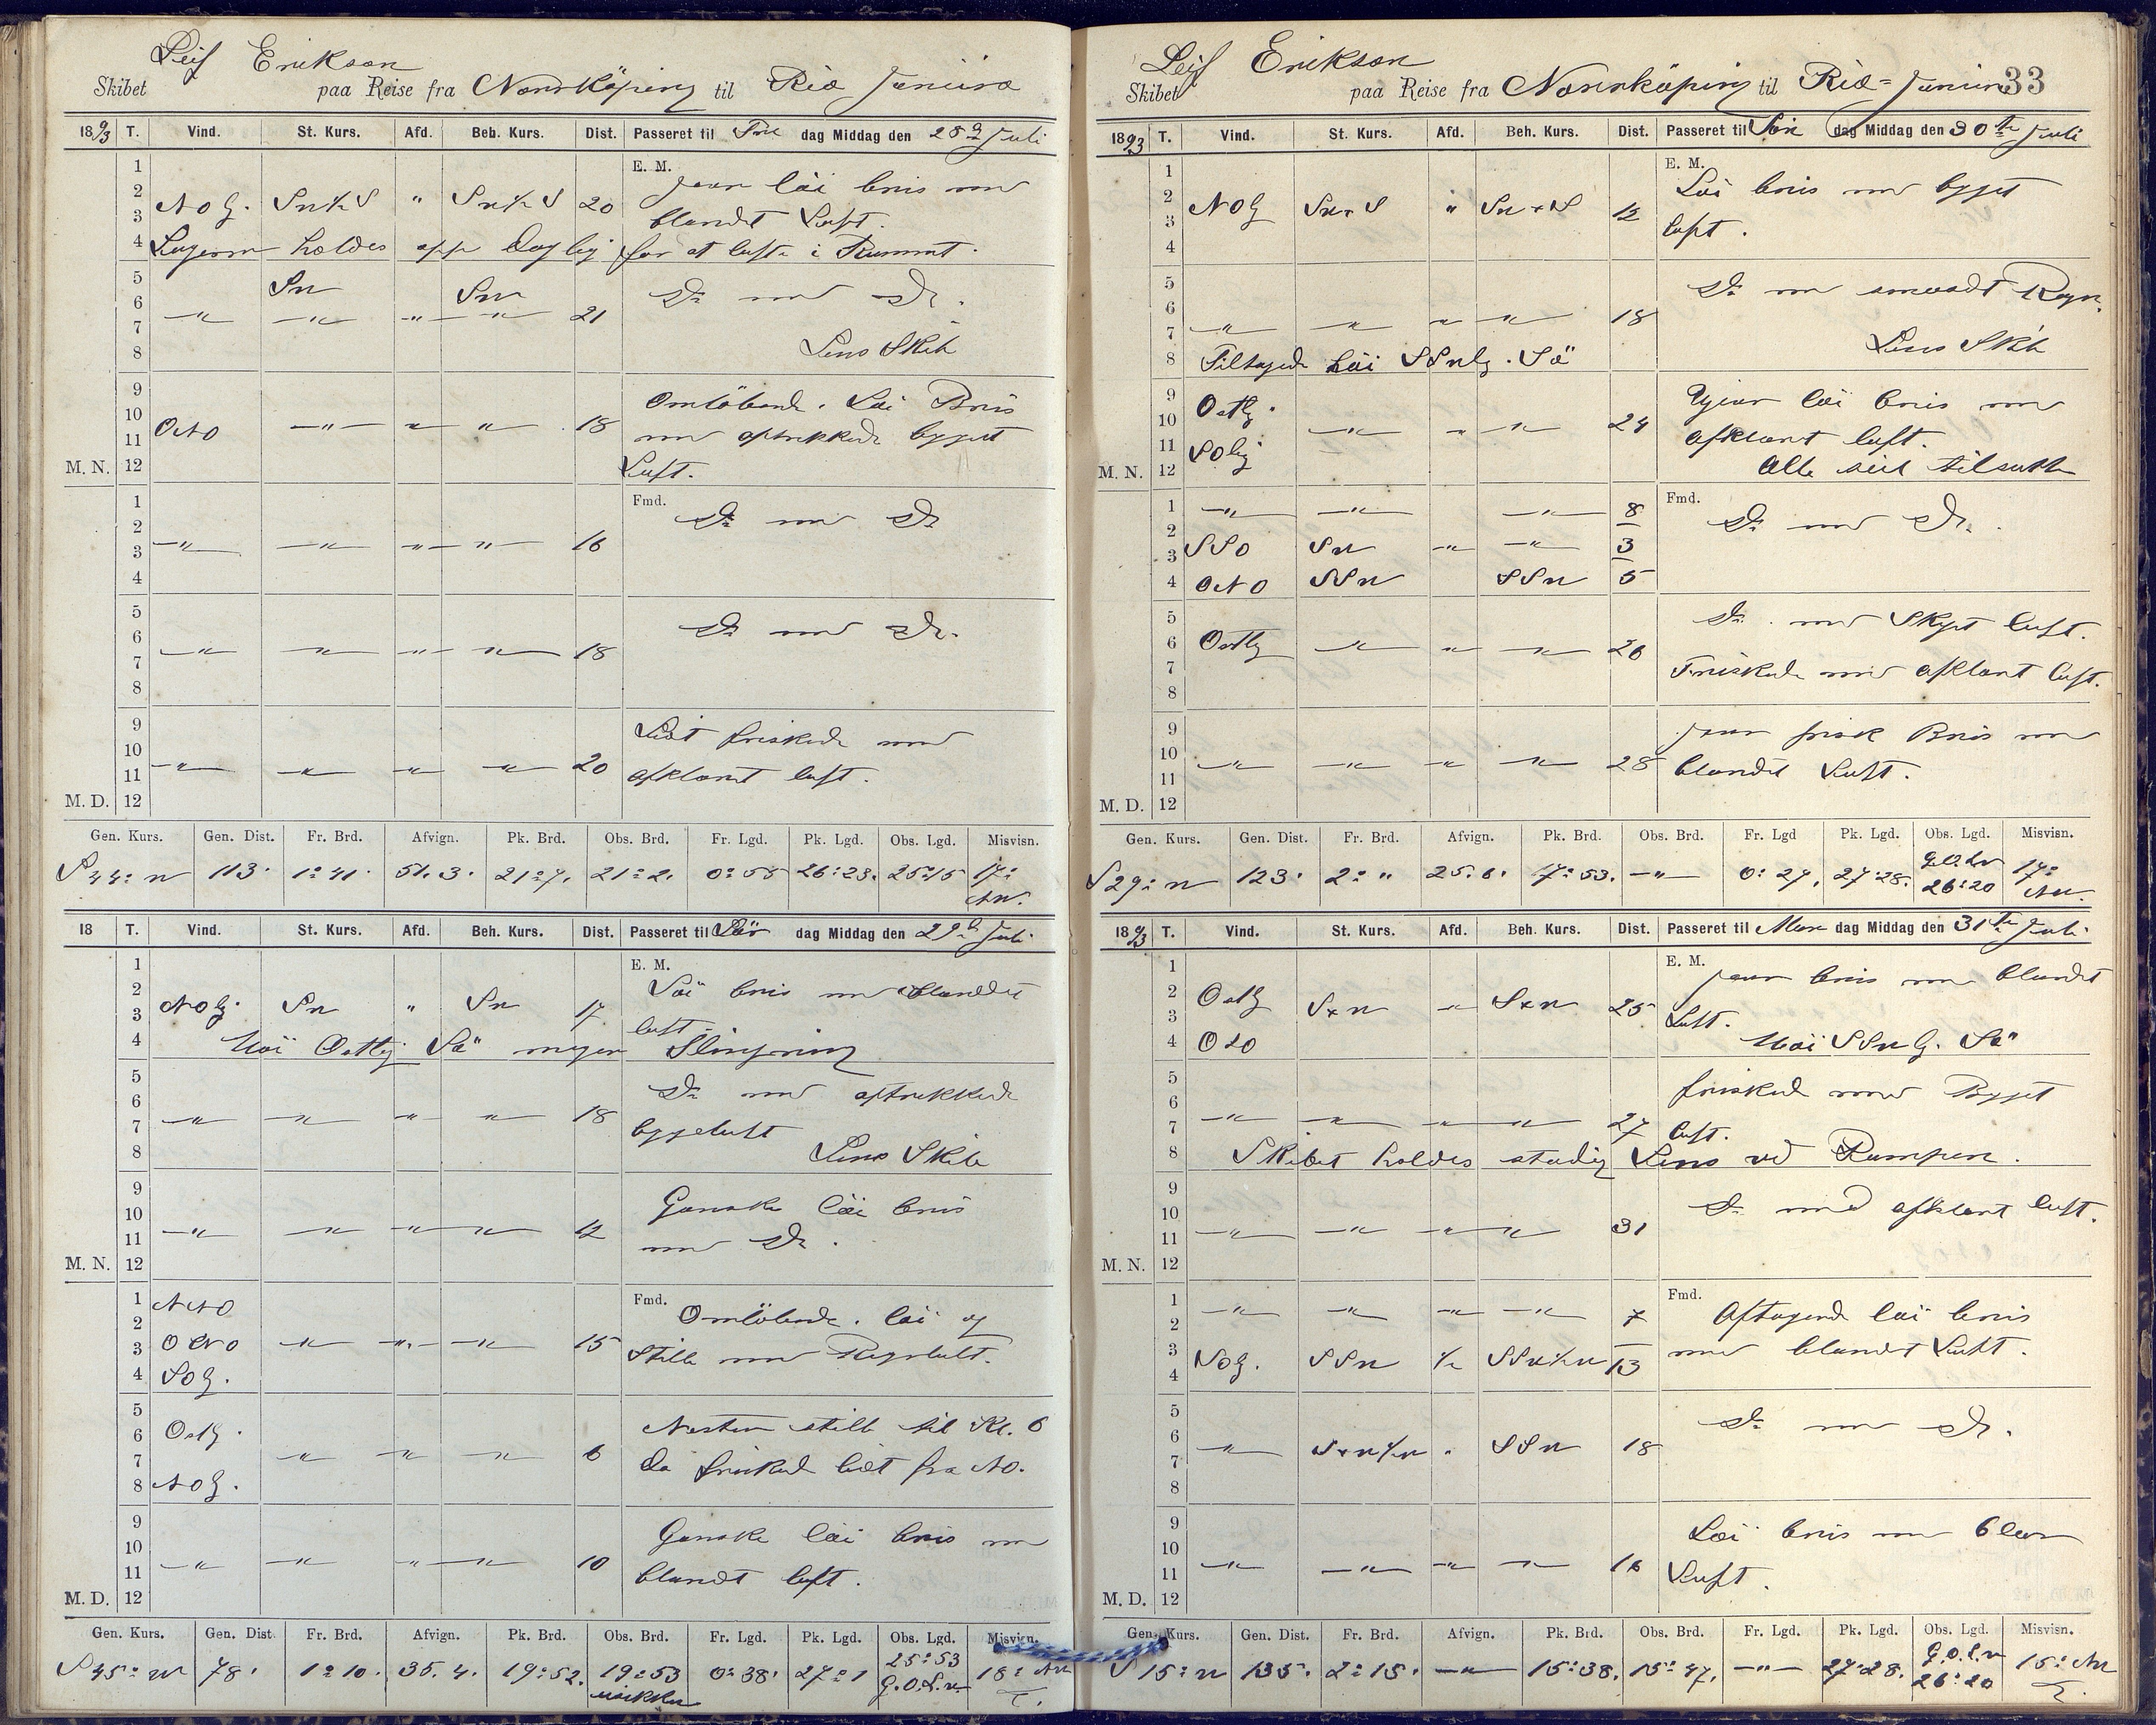 Leif Erikson
Skibet paa Reise fra Norrköping til Rio Janeiro
1893 T. Vind. St. Kurs. Afd. Beh. Kurs. Dist. Passeret til Fre dag Middag den 28d Juli
E. M.
1 2 3 4
jevn løi bris med
NOlg. SW½S " SW½S 20 blandet Luft.
Lugerne holdes opp Daglig for at lufte i Rummet.
5 6 7 8
SW SW Do med Do.
" " " " 21
Lens Skib
9 10 11 12
Omløbende. Løi Bris
ONO " " " 18 med optrekkende bygget
M. N. Luft.
Fmd.
1 2 3 4
Do med Do
" " " " 16
5 6 7 8
Do med Do.
" " " " 18
9 10 11 12
Lidt friskede med
" " " " 20 afklaret luft.
M. D.
Gen. Kurs. Gen. Dist. Fr. Brd. Afvign. Pk. Brd. Obs. Brd. Fr. Lgd. Pk. Lgd. Obs. Lgd. Misvisn.
S 44° W 113. 1° 41. 51. 3. 21° 7. 21° 2. 0° 55 26° 23. 25° 15 17° NW.
18 T. Vind. St. Kurs. Afd. Beh. Kurs. Dist. Passeret til Lør dag Middag den 29d Juli
E. M.
1 2 3 4
Løi bris med blandet
NOlg. SW " SW 17 luft.
Høi Ostlig Sø megen Slingring
5 6 7 8
Do med optrekkende
" " " " 18 byggeluft
Lens Skib
9 10 11 12
Ganske løi bris
" " " " 12 med Do.
M. N.
Fmd.
1 2 3 4
NNO Omløbende. løi og
ONO " " " 15 Stille med Regnbult.
SOlg.
5 6 7 8
Ostlg. Nesten stille til Kl. 6
" " " 6 da frisked lidt fra NO.
NOlg.
9 10 11 12
Ganske løi bris med
" " " " 10 blandt luft.
M. D.
Gen. Kurs. Gen. Dist. Fr. Brd. Afvign. Pk. Brd. Obs. Brd. Fr. Lgd. Pk. Lgd. Obs. Lgd. Misvisn.
S 45° W 78. 1° 10. 35. 4. 19° 52. 19° 53 usikker 0° 38. 27° 1 25° 53 G.O.L.v. 18° NW
Leif Erikson
Skibet paa Reise fra Norrköping til Rio-Janeiro 33
1893 T. Vind. St. Kurs. Afd. Beh. Kurs. Dist. Passeret til Søn dag Middag den 30te Juli
E. M.
1 2 3 4
Løi bris med bygget
NOlg SW+S " SW+S 12 luft.
5 6 7 8
Do med smaadt Regn.
" " " " 18
Lens Skib
Tiltagende høi SSWlg. Sø
9 10 11 12
Ostlg. Ujevn løi bris med
" " " 24 afklaret luft.
SOlig
M. N. Alle seil tilsatte
Fmd.
1 2 3 4
" " " 8 Do med Do.
SSO SW " " 3
ONO SSW SSW 5
5 6 7 8
Do. med Skyet luft.
Ostlg " " " 26
Friskede med afklaret luft.
9 10 11 12
jevn frisk Bris med
" " " " 28 blandet Luft.
M. D.
Gen. Kurs. Gen. Dist. Fr. Brd. Afvign. Pk. Brd. Obs. Brd. Fr. Lgd Pk. Lgd. Obs. Lgd. Misvisn.
S 29° W 123. 2° " 25. 6. 17° 53. " 0° 27. 27° 28. G.O.Lv 26° 20 17° NW.
1893 T. Vind. St. Kurs. Afd. Beh. Kurs. Dist. Passeret til Man dag Middag den 31te Juli
E. M.
1 2 3 4
jevn bris med blandet
Ostlg S+W " S+W 25 Luft.
OSO Høi SSWlg. Sø
5 6 7 8
frisked med Bygget
" " " " 27 luft.
Skibet holdes stadig Lens ved Pumpen.
9 10 11 12
Do med afklaret luft.
" " " " 31
M. N.
Fmd.
1 2 3 4
" " " " 7 Aftagende løi bris
NOlg. SSW ½ SSW½W 13 med blandet Luft.
5 6 7 8
Do med Do.
" S+W½W " SSW 18
9 10 11 12
Løi bris med klar
" " " " 16 Luft.
M. D.
Gen. Kurs. Gen. Dist. Fr. Brd. Afvign. Pk. Brd. Obs. Brd. Fr. Lgd. Pk. Lgd. Obs. Lgd. Misvisn.
S 15° W 135. 2° 15. " 15° 38. 15° 47. " 27° 28. G.O.L.v 26° 20 15° NW